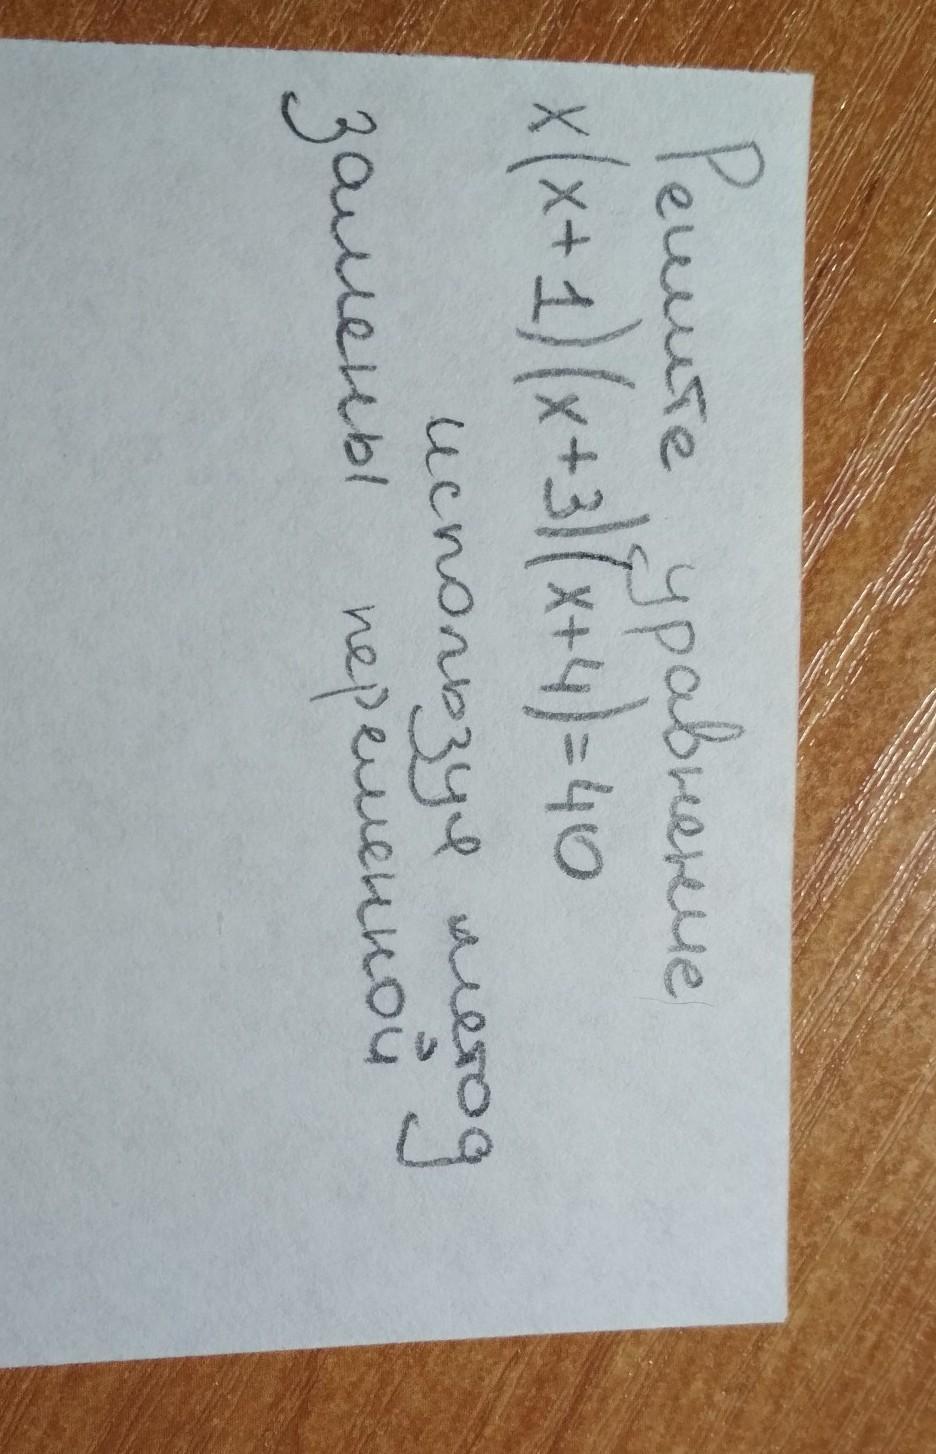 Решите уравнение
x(x+1)(x+3)(x+4)=40
используя метод
замены переменной